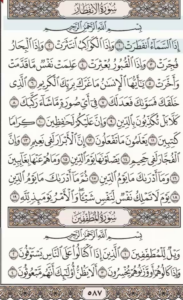 سُورَةُ الِانفِطَارِ
بِسْمِ ٱللَّهِ ٱلرَّحْمَٰنِ ٱلرَّحِيمِ
إِذَا ٱلسَّمَآءُ ٱنفَطَرَتْ ۝١ وَإِذَا ٱلْكَوَاكِبُ ٱنتَثَرَتْ ۝٢ وَإِذَا ٱلْبِحَارُ
فُجِّرَتْ ۝٣ وَإِذَا ٱلْقُبُورُ بُعْثِرَتْ ۝٤ عَلِمَتْ نَفْسٌ مَّا قَدَّمَتْ
وَأَخَّرَتْ ۝٥ يَٰٓأَيُّهَا ٱلْإِنسَٰنُ مَا غَرَّكَ بِرَبِّكَ ٱلْكَرِيمِ ۝٦ ٱلَّذِى
خَلَقَكَ فَسَوَّىٰكَ فَعَدَلَكَ ۝٧ فِىٓ أَىِّ صُورَةٍ مَّا شَآءَ رَكَّبَكَ ۝٨
كَلَّا بَلْ تُكَذِّبُونَ بِٱلدِّينِ ۝٩ وَإِنَّ عَلَيْكُمْ لَحَٰفِظِينَ ۝١٠ كِرَامًا
كَٰتِبِينَ ۝١١ يَعْلَمُونَ مَا تَفْعَلُونَ ۝١٢ إِنَّ ٱلْأَبْرَارَ لَفِى نَعِيمٍ ۝١٣ وَإِنَّ
ٱلْفُجَّارَ لَفِى جَحِيمٍ ۝١٤ يَصْلَوْنَهَا يَوْمَ ٱلدِّينِ ۝١٥ وَمَا هُمْ عَنْهَا بِغَآئِبِينَ
۝١٦ وَمَآ أَدْرَىٰكَ مَا يَوْمُ ٱلدِّينِ ۝١٧ ثُمَّ مَآ أَدْرَىٰكَ مَا يَوْمُ ٱلدِّينِ
۝١٨ يَوْمَ لَا تَمْلِكُ نَفْسٌ لِّنَفْسٍ شَيْـًٔا وَٱلْأَمْرُ يَوْمَئِذٍ لِّلَّهِ ۝١٩
سُورَةُ المُطَفِّفِينَ
بِسْمِ ٱللَّهِ ٱلرَّحْمَٰنِ ٱلرَّحِيمِ
وَيْلٌ لِّلْمُطَفِّفِينَ ۝١ ٱلَّذِينَ إِذَا ٱكْتَالُوا۟ عَلَى ٱلنَّاسِ يَسْتَوْفُونَ ۝٢
وَإِذَا كَالُوهُمْ أَو وَّزَنُوهُمْ يُخْسِرُونَ ۝٣ أَلَا يَظُنُّ أُو۟لَٰٓئِكَ أَنَّهُم مَّبْعُوثُونَ ۝٤
٥٨٧